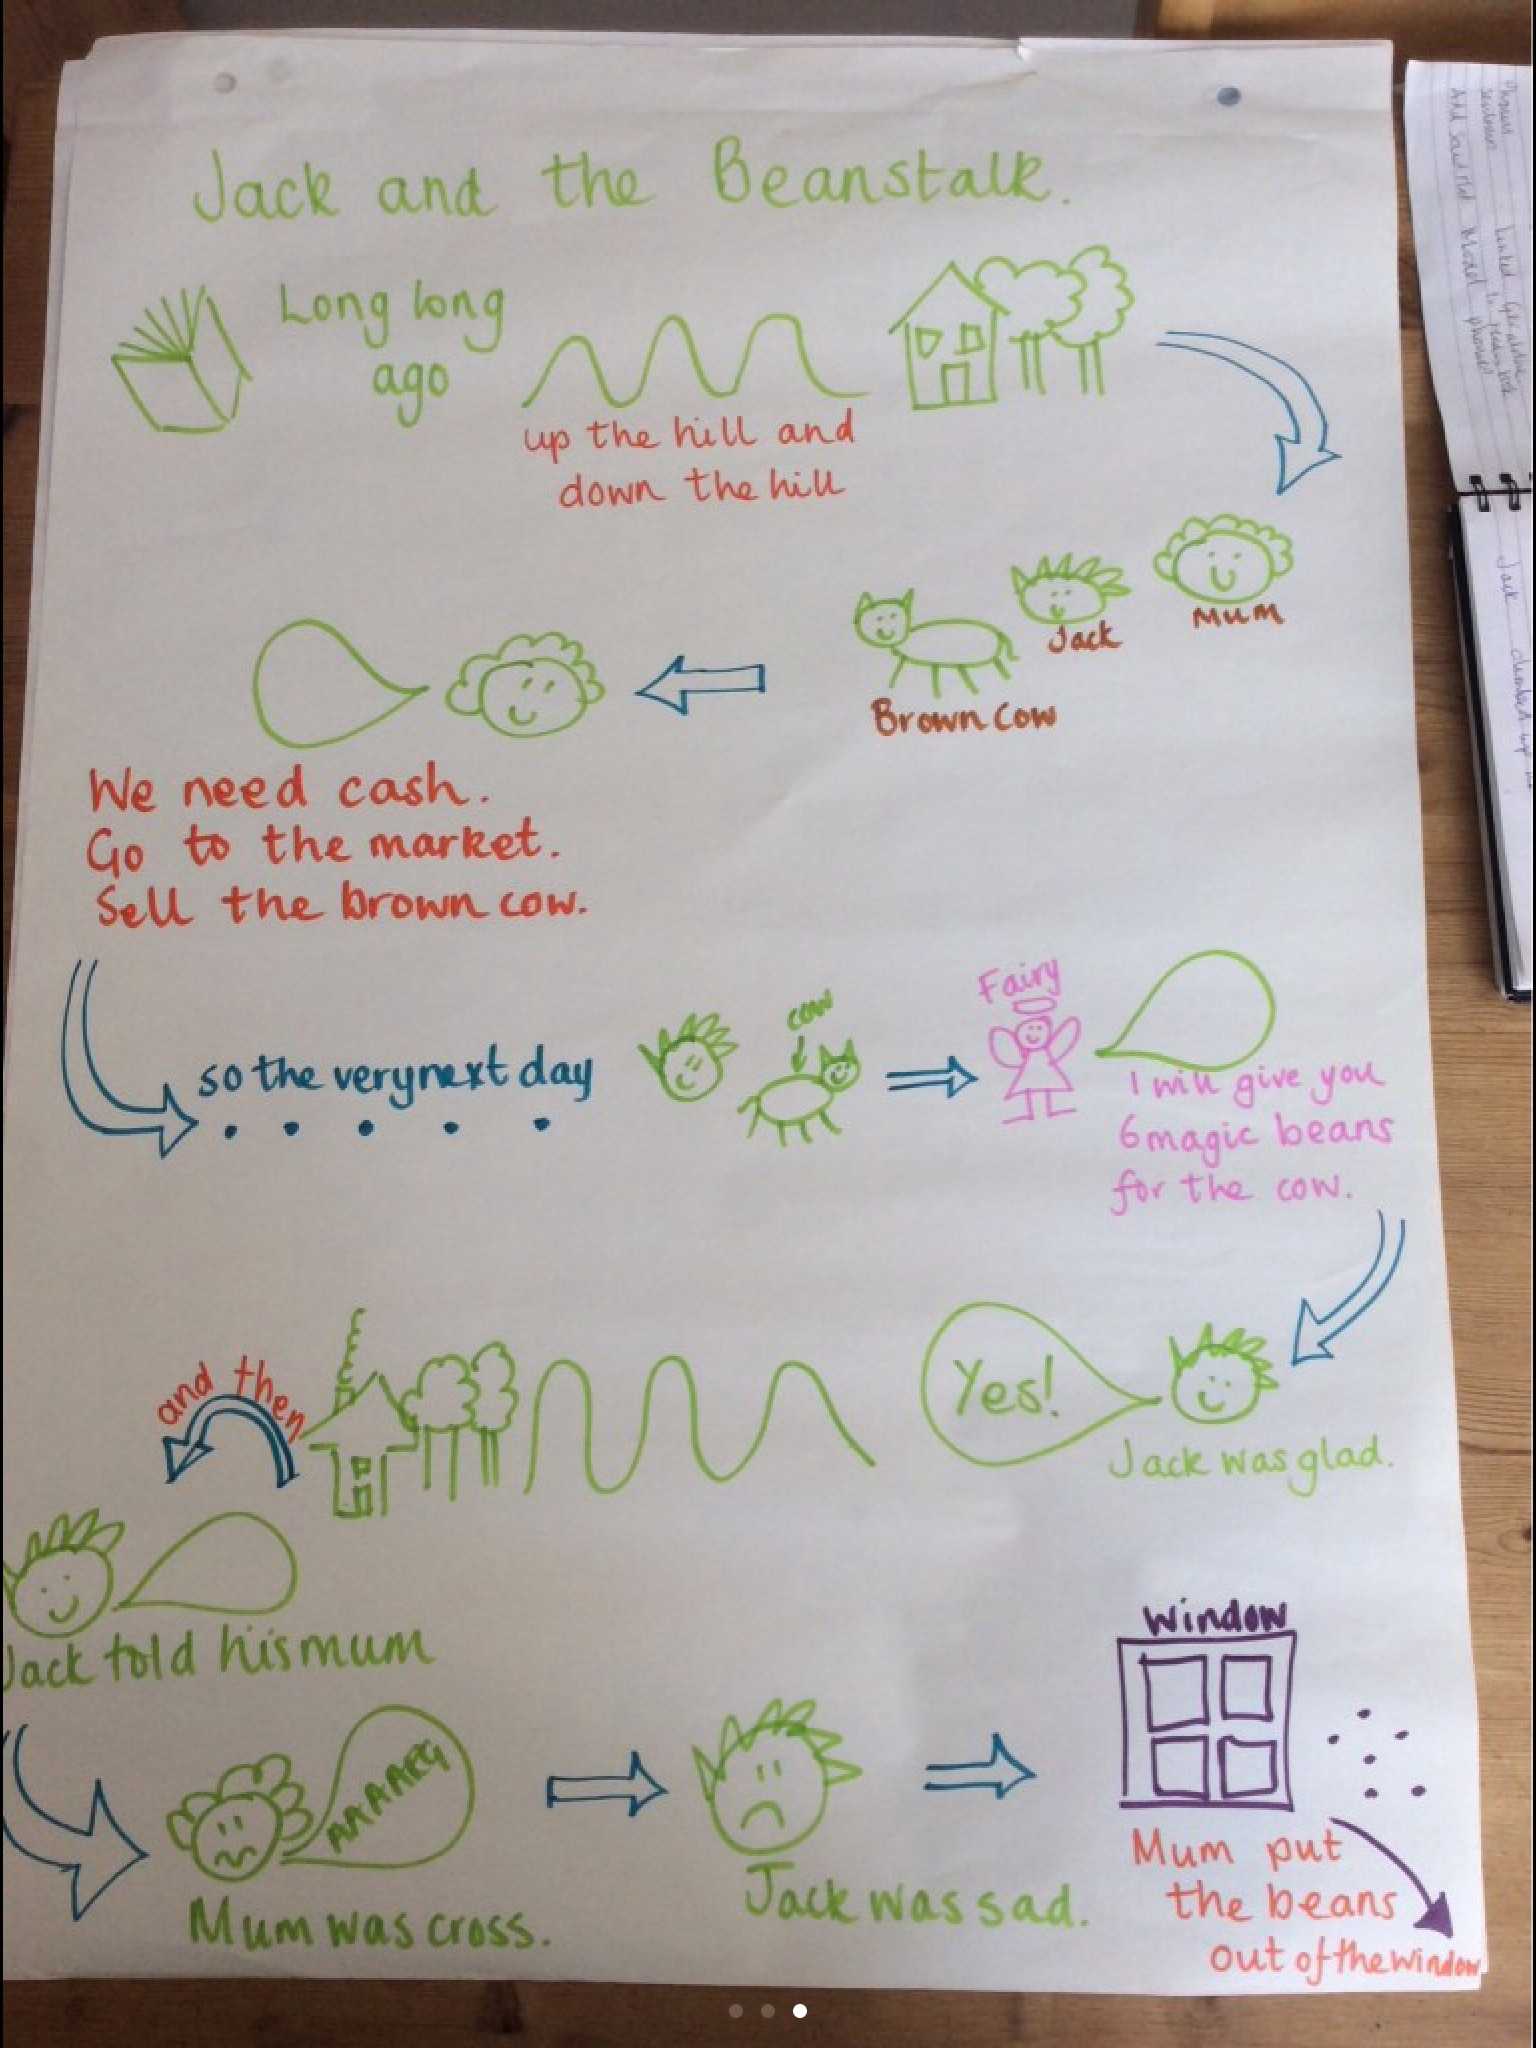 Jack and the Beanstalk.
Long long
ago
up the hill and
down the hill
Mum
Jack
Brown cow
We need cash.
Go to the market.
Sell the brown cow.
so the very next day
cow
Fairy
I will give you
6 magic beans
for the cow.
Yes!
Jack was glad.
and then
Jack told his mum
AAAARG
Mum was cross.
Jack was sad.
Window
Mum put
the beans
out of the window
Jack